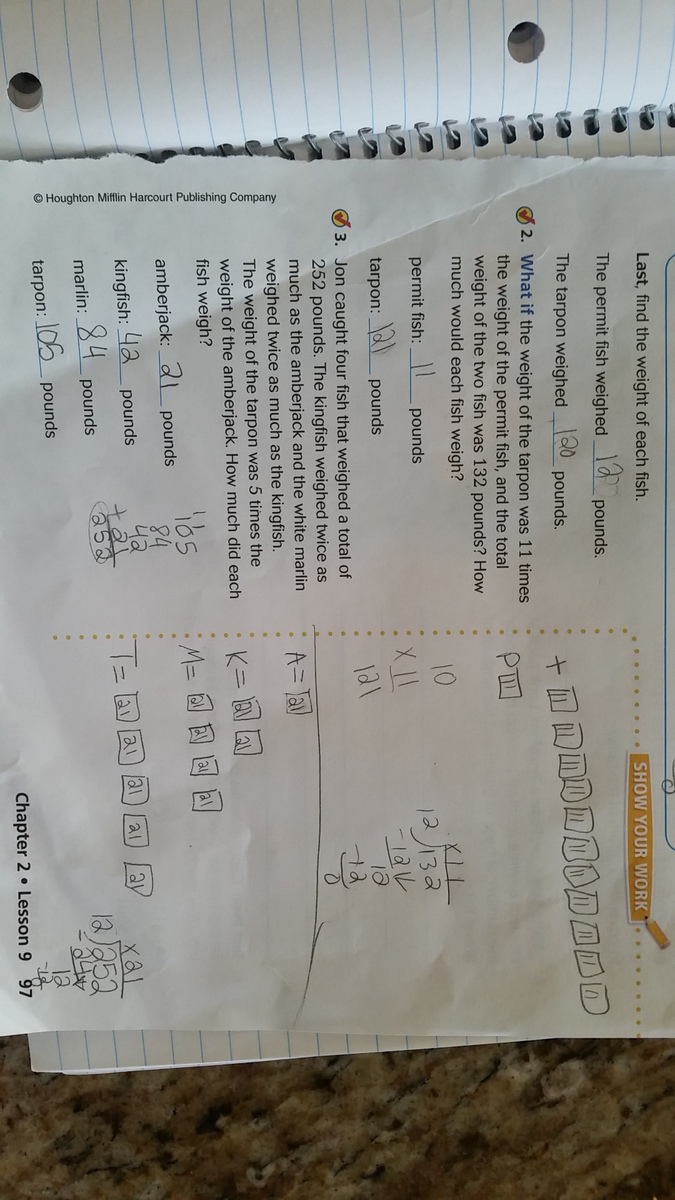 Last, find the weight of each fish.
The permit fish weighed 12 pounds.
The tarpon weighed 120 pounds.
SHOW YOUR WORK
2. What if the weight of the tarpon was 11 times
the weight of the permit fish, and the total
weight of the two fish was 132 pounds? How
much would each fish weigh?
permit fish: 11 pounds
tarpon: 121 pounds
+ 11 11 11 11 11 11 11 11 11 11 11
P 11
10
X 11
121
X11
12)132
-12↓
12
-12
0
3. Jon caught four fish that weighed a total of
252 pounds. The kingfish weighed twice as
much as the amberjack and the white marlin
weighed twice as much as the kingfish.
The weight of the tarpon was 5 times the
weight of the amberjack. How much did each
fish weigh?
amberjack: 21 pounds
kingfish: 42 pounds
marlin: 84 pounds
tarpon: 105 pounds
105
84
42
+ 21
252
A = 21
K = 21 21
M = 21 21 21 21
T = 21 21 21 21 21
X21
12)252
-24↓
12
-12
0
© Houghton Mifflin Harcourt Publishing Company
Chapter 2 • Lesson 9 97